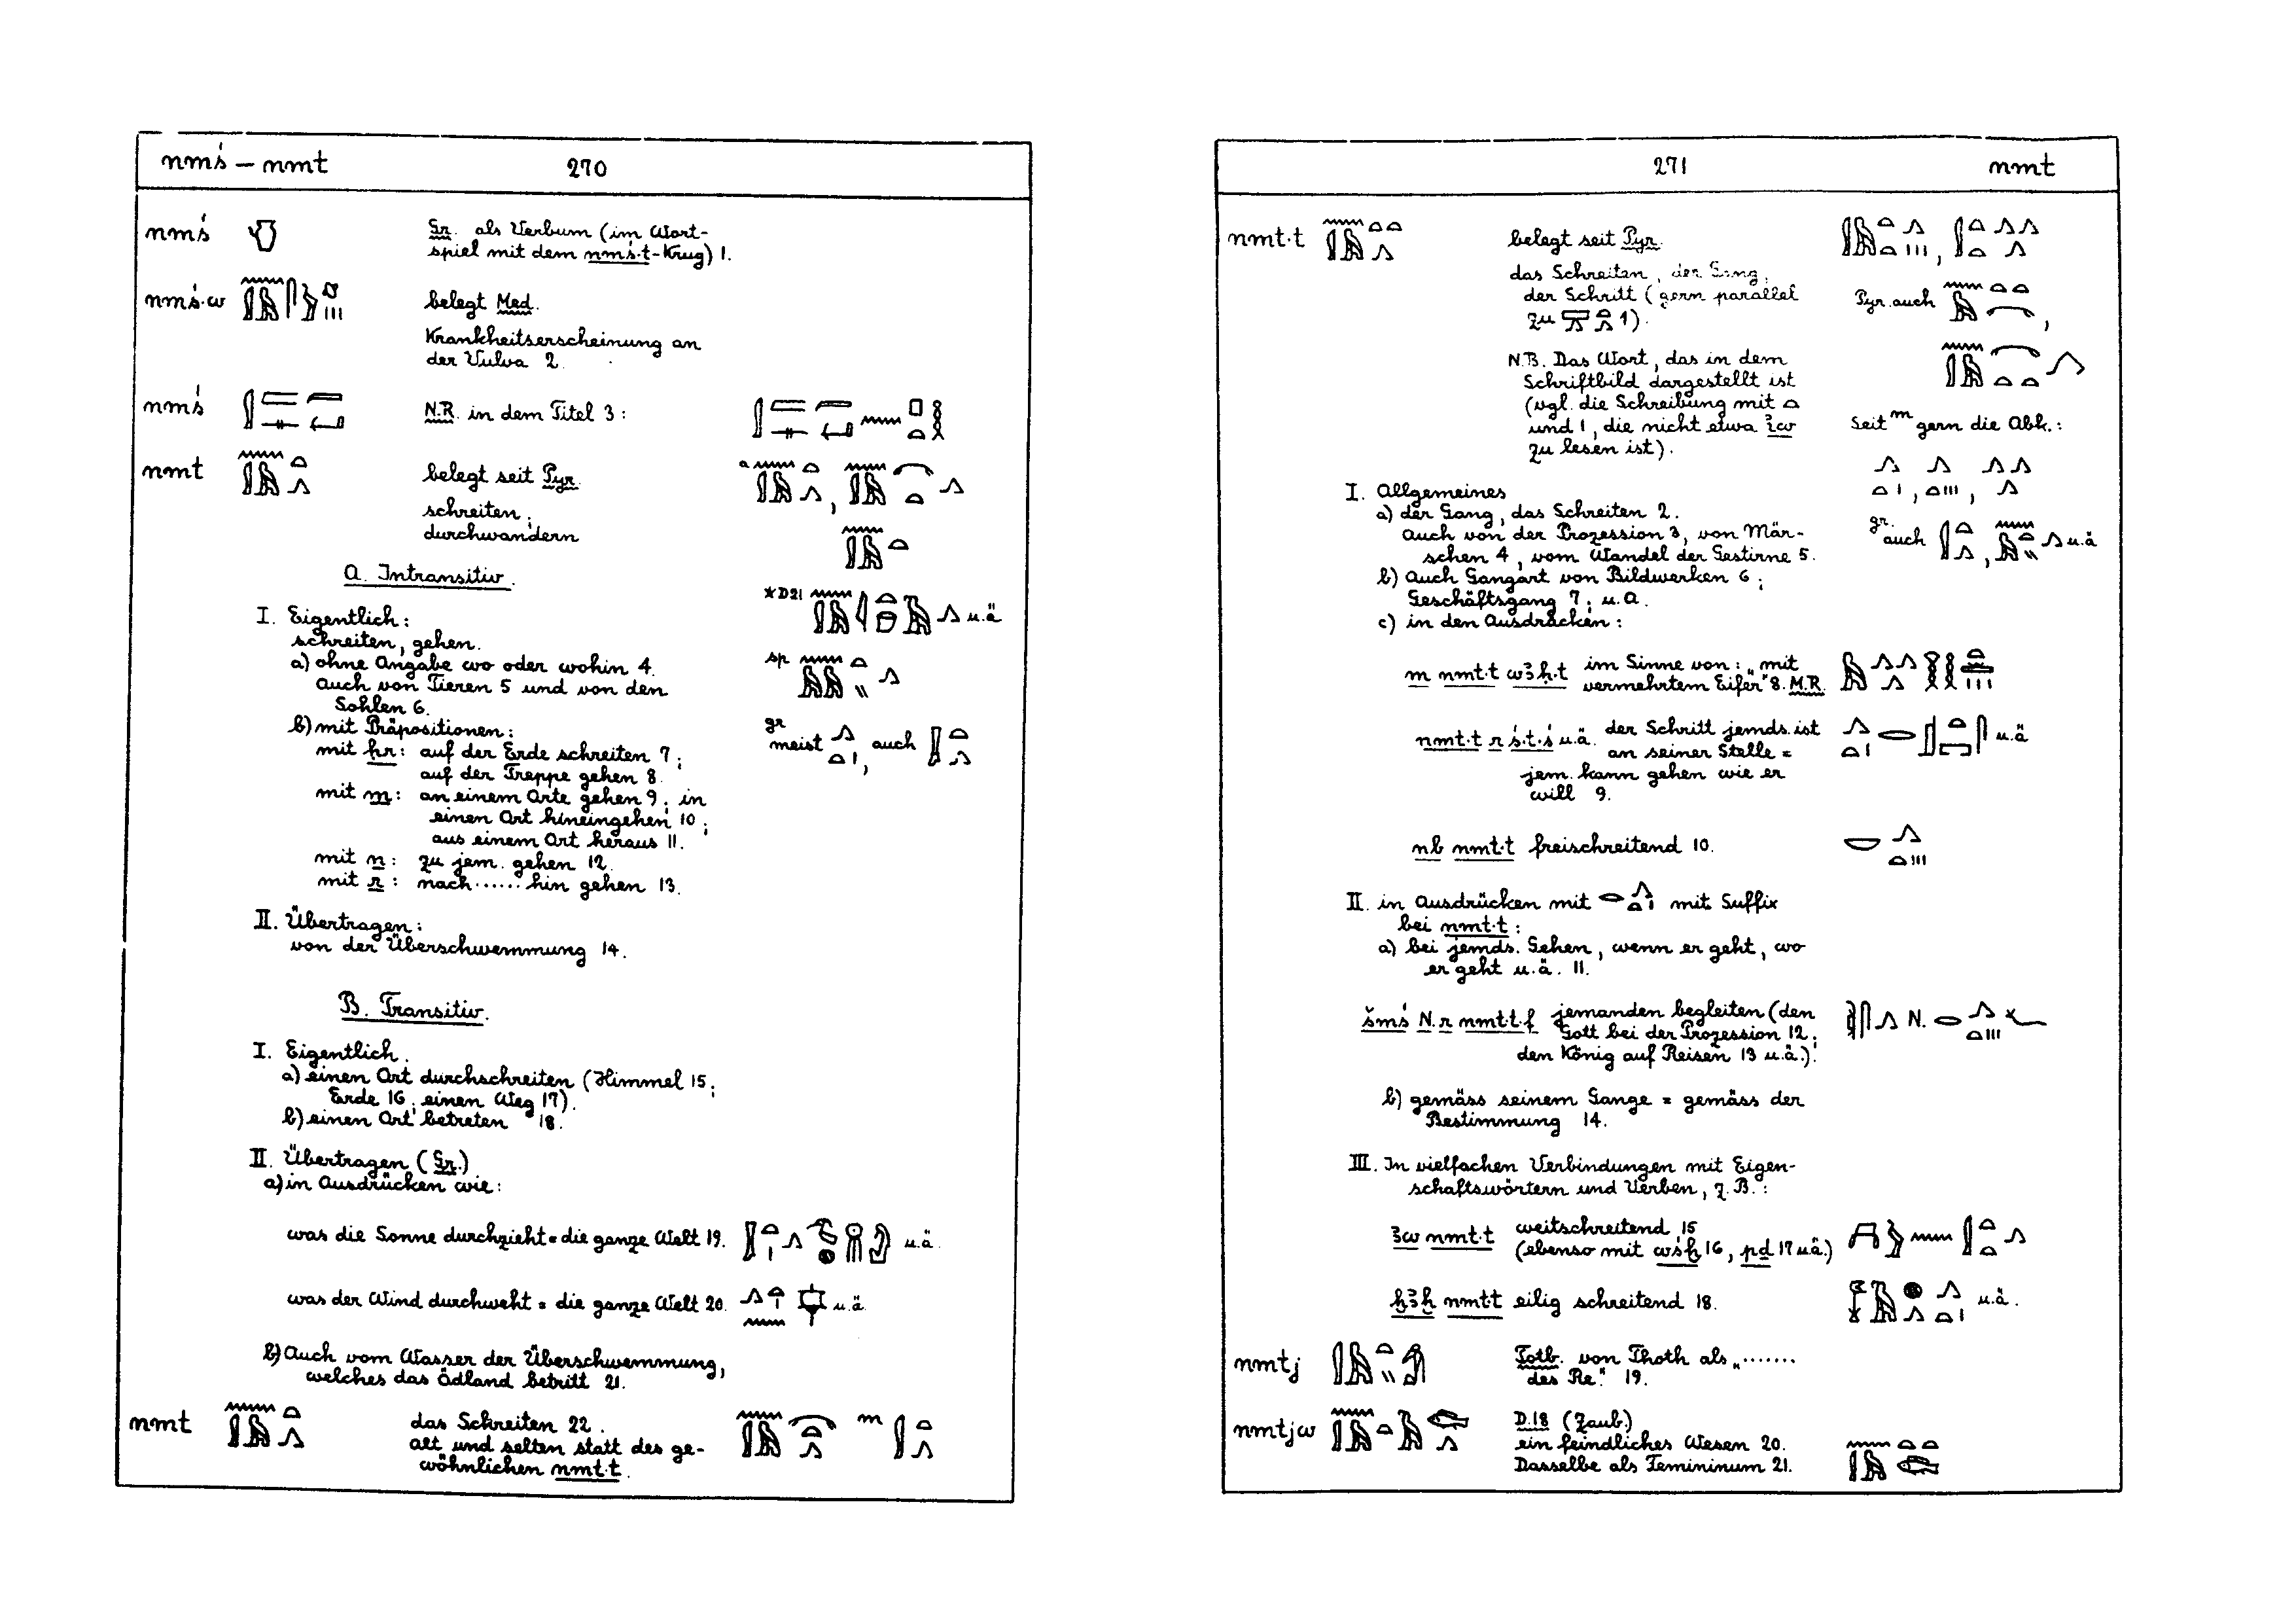 nmś – nmt 270
nmś Gr. als Verbum (im Wort-
spiel mit dem nmś.t-Krug) 1.
nmś.w belegt Med.
Krankheitserscheinung an
der Vulva 2
nmś N.R. in dem Titel 3 :
nmt belegt seit Pyr.
schreiten ;
durchwandern
A. Intransitiv.
I. Eigentlich :
schreiten, gehen.
a) ohne Angabe wo oder wohin 4.
auch von Tieren 5 und von den
Sohlen 6.
b) mit Präpositionen :
mit ḥr : auf der Erde schreiten 7 ;
auf der Treppe gehen 8.
mit m : an einem Orte gehen 9 ; in
einen Ort hineingehen 10 ;
aus einem Ort heraus 11.
mit n : zu jem. gehen 12.
mit r : nach ...... hin gehen 13.
II. Übertragen :
von der Überschwemmung 14.
B. Transitiv.
I. Eigentlich.
a) einen Ort durchschreiten (Himmel 15 ;
Erde 16 ; einen Weg 17).
b) einen Ort betreten 18.
II. Übertragen (Gr.)
a) in Ausdrücken wie :
was die Sonne durchzieht = die ganze Welt 19. u.ä.
was der Wind durchweht = die ganze Welt 20. u.ä.
b) Auch vom Wasser der Überschwemmung,
welches das Ödland betritt 21.
nmt das Schreiten 22.
alt und selten statt des ge-
wöhnlichen nmt.t.
a
*D21 u.ä
sp
gr
meist , auch
m
271 nmt
nmt.t belegt seit Pyr.
das Schreiten, der Gang,
der Schritt (gern parallel
zu 1).
N.B. Das Wort, das in dem
Schriftbild dargestellt ist
(vgl. die Schreibung mit
und 1, die nicht etwa ꞽw
zu lesen ist).
Pyr. auch
Seit m gern die Abk. :
gr. auch u.ä
I. Allgemeines
a) der Gang, das Schreiten 2.
auch von der Prozession 3, von Mär-
schen 4, vom Wandel der Gestirne 5.
b) Auch Gangart von Bildwerken 6 ;
Geschäftsgang 7 ; u.a.
c) in den Ausdrücken :
m nmt.t wꜣḥ.t im Sinne von : „mit
vermehrtem Eifer" 8. M.R.
nmt.t r ś.t.ś u.ä. der Schritt jemds. ist u.ä
an seiner Stelle =
jem. kann gehen wie er
will 9.
nb nmt.t freischreitend 10.
II. in Ausdrücken mit mit Suffix
bei nmt.t :
a) bei jemds. Gehen, wenn er geht, wo
er geht u.ä. 11.
šmś N. r nmt.t.f jemanden begleiten (den N.
Gott bei der Prozession 12 ;
den König auf Reisen 13 u.ä.).
b) gemäss seinem Gange = gemäss der
Bestimmung 14.
III. In vielfachen Verbindungen mit Eigen-
schaftswörtern und Verben, z.B. :
ꜣw nmt.t weitschreitend 15
(ebenso mit wśḫ 16, pd 17 u.ä.)
ḫꜣḫ nmt.t eilig schreitend 18. u.ä.
nmtj Totb. von Thoth als „.......
des Re." 19.
nmtjw D.18 (Zaub.)
ein feindliches Wesen 20.
Dasselbe als Femininum 21.